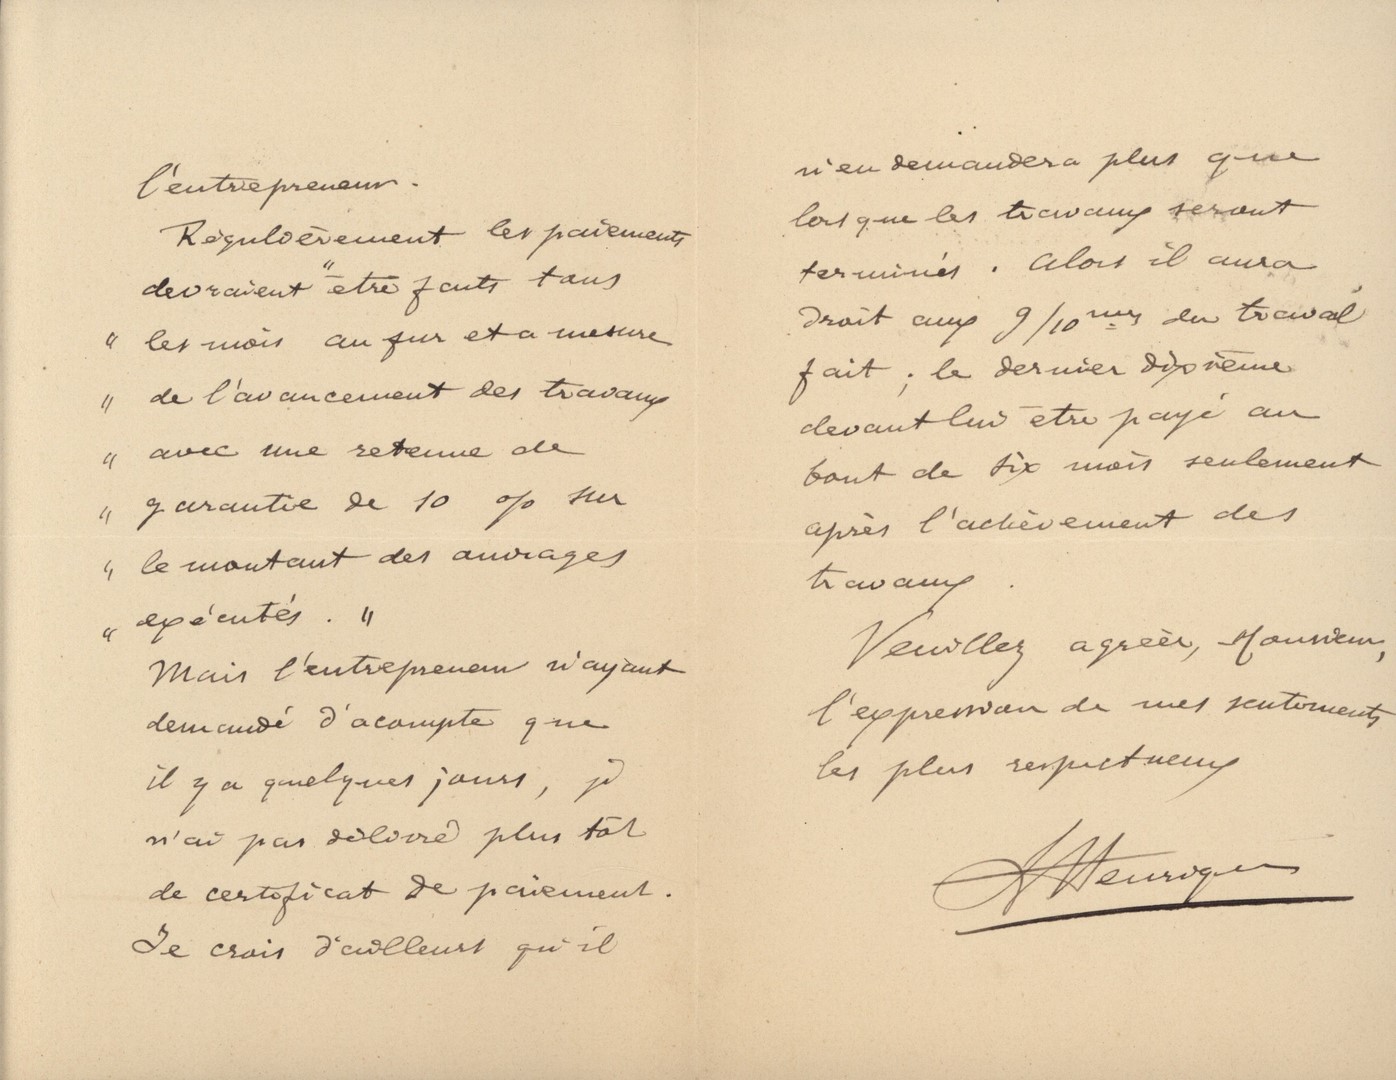 l'entrepreneur.
Régulièrement les paiements
devraient " être faits tous
" les mois au fur et a mesure
" de l'avancement des travaux
" avec une retenue de
" garantie de 10 % sur
" le montant des ouvrages
" exécutés. "
Mais l'entrepreneur n'ayant
demandé d'acompte que
il y a quelques jours, je
n'ai pas délivré plus tôt
de certificat de paiement.
Je crois d'ailleurs qu'il
n'en demandera plus que
lorsque les travaux seront
terminés. Alors il aura
droit aux 9/10mes du travail
fait ; le dernier dixième
devant lui être payé au
bout de six mois seulement
après l'achèvement des
travaux.
Veuillez agréer, Monsieur,
l'expression de mes sentiments
les plus respectueux